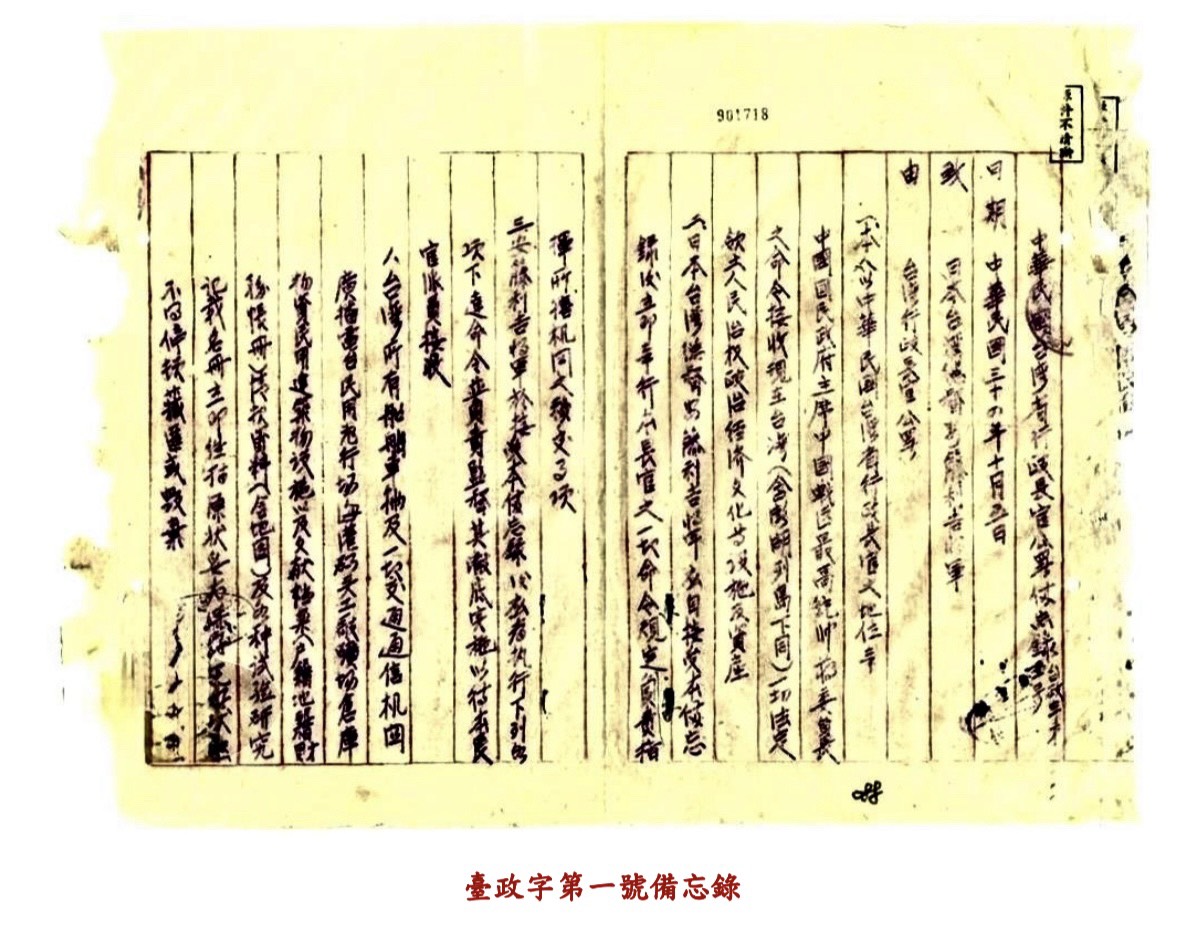 901718
原件不清晰
中華民國台灣省行政長官公署備忘錄
日期 中華民國三十四年十月 日
致 日本台灣總督 安藤利吉將軍
由 台灣行政長官公署
一、本人以中華民國台灣省行政長官之地位奉
中國國民政府主席中國戰區最高統帥蔣委員長
之命令接收現在台灣(含澎湖列島下同)一切法定
領土人民治权政治經濟文化等項施及資產
二、日本台灣總督 安藤利吉將軍 自接受本備忘
錄後立即奉行本長官之一切命令規定負責指
揮所 机関之移交事項
三、安藤利吉將軍於接受本備忘錄後 執行下列各
項下達命令並負責監督其澈底实施以待本長
官派員接收
人台灣所有船舶車輛及一切交通通信机関
廣播電台民用飛行場海港 工 場倉庫
物資民用建築物設施以及文献檔案(戶籍地籍財
務帳冊) 資料(含地图)及各种試驗研究
記載名冊立即 原狀妥為保
不得 或毀棄
088
臺政字第一號備忘錄